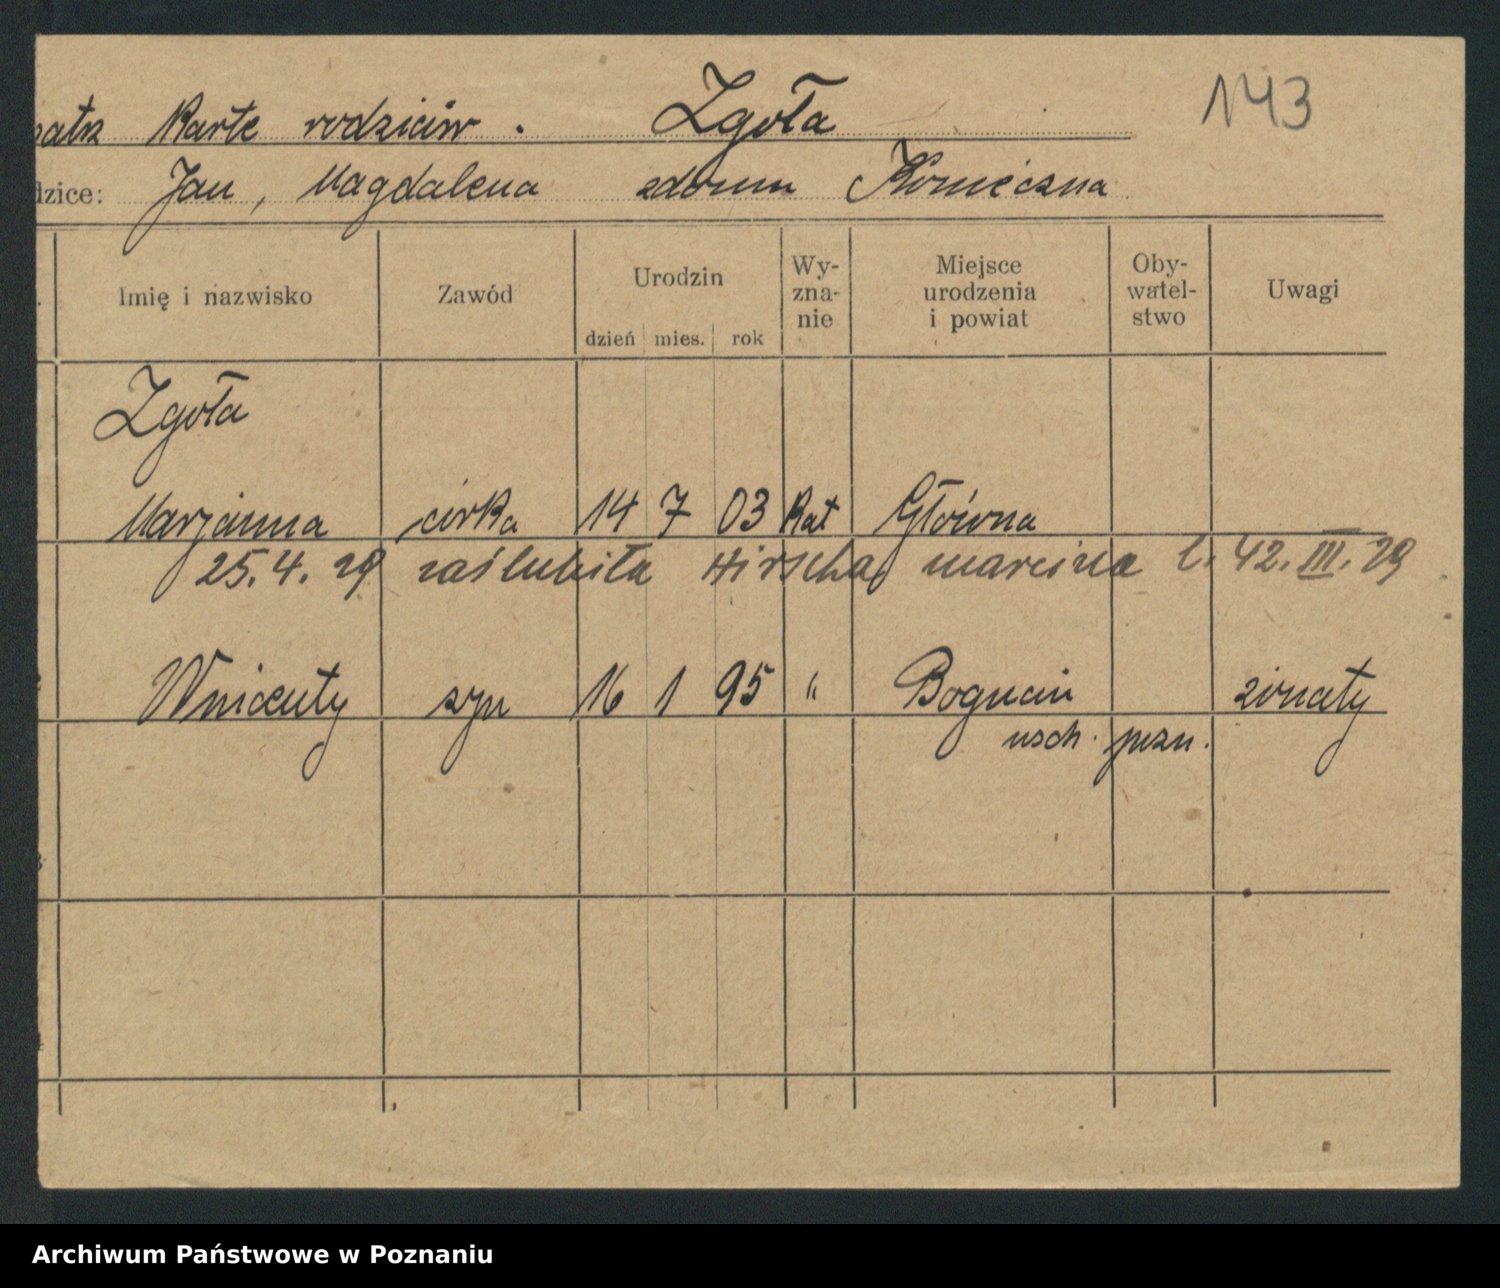 patrz Karte rodziców. Zgoła 1143
dzice: Jan, Magdalena zdomu Konieczna
Imię i nazwisko Zawód Urodzin dzień mies. rok Wy-zna-nie Miejsce urodzenia i powiat Oby-watel-stwo Uwagi
Zgoła
Marjanna córka 14 7 03 Kat Główna
25.4.29 zaślubiła Hirscha marcina l. 42.III.29
Wnicenty syn 16 1 95 " Bogucin żonaty
wsch. pozn.
Archiwum Państwowe w Poznaniu